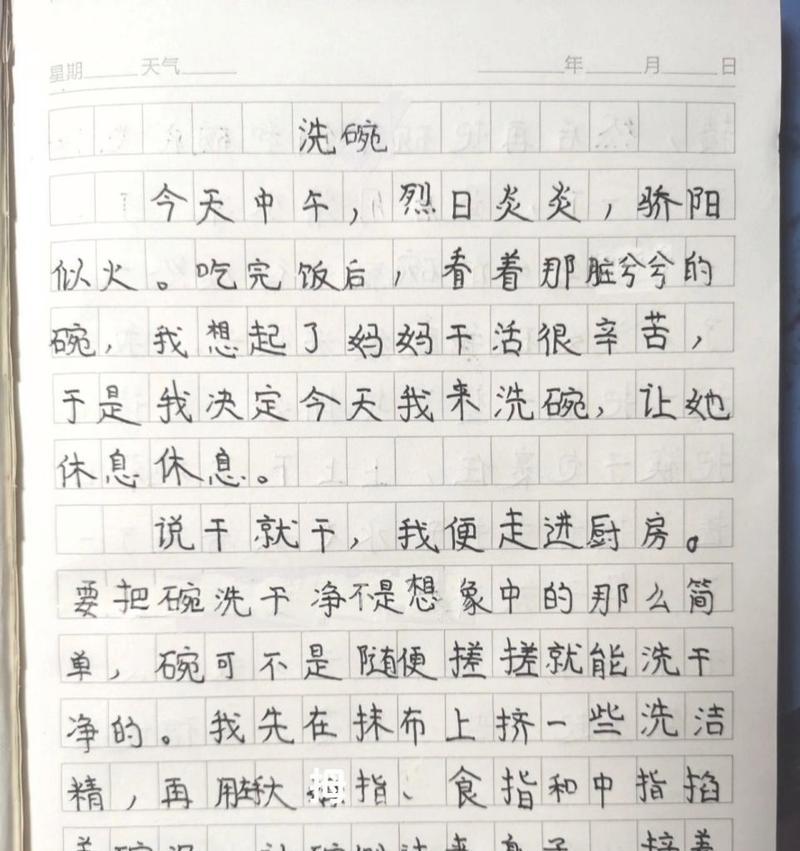 星期 天气 年 月 日
洗碗
今天中午，烈日炎炎，骄阳
似火。吃完饭后，看着那脏兮兮的
碗，我想起了妈妈干活很辛苦，
于是我决定今天我来洗碗，让她
休息休息。
说干就干，我便走进厨房。
要把碗洗干净不是想象中的那么简
单，碗可不是随便搓搓就能洗干
净的。我先在抹布上挤一些洗洁
精，再用大拇指、食指和中指掐